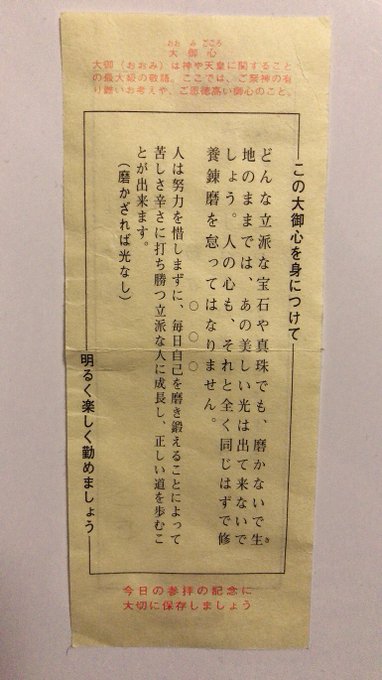 おおみごころ
大御心
大御（おおみ）は神や天皇に関すること
の最大級の敬語。ここでは、ご祭神の有
り難いお考えや、ご恩徳高い御心のこと。
この大御心を身につけて
どんな立派な宝石や真珠でも、磨かないで生き
地のままでは、あの美しい光は出て来ないで
しょう。人の心も、それと全く同じはずで修
養錬磨を怠ってはなりません。
○○○
人は努力を惜しまずに、毎日自己を磨き鍛えることによって
苦しさ辛さに打ち勝つ立派な人に成長し、正しい道を歩むこ
とが出来ます。
（磨かざれば光なし）
明るく楽しく勤めましょう
今日の参拝の記念に
大切に保存しましょう